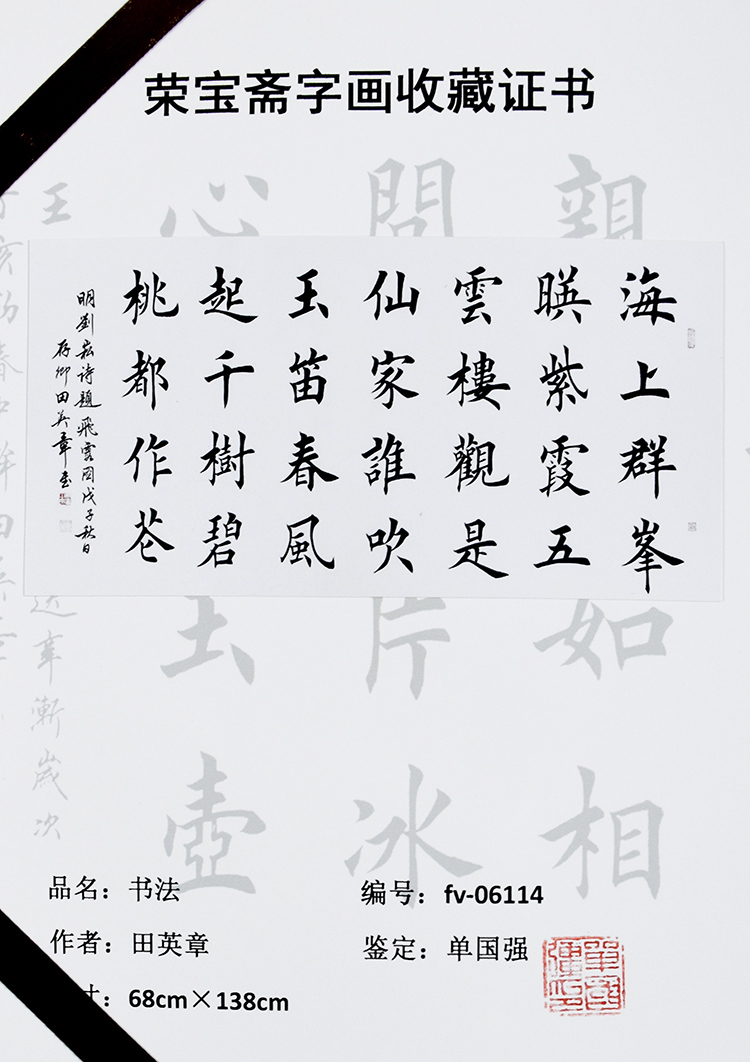 荣宝斋字画收藏证书
海上群峯
暎紫霞五
雲樓觀是
仙家誰吹
玉笛春風
起千樹碧
桃都作花
明劉崧诗題飛雲圖戊子秋日
存卿田英章書
親
如
相
問
片
冰
心
玉
壺
品名：书法
编号：fv-06114
作者：田英章
鉴定：单国强
寸：68cm×138cm